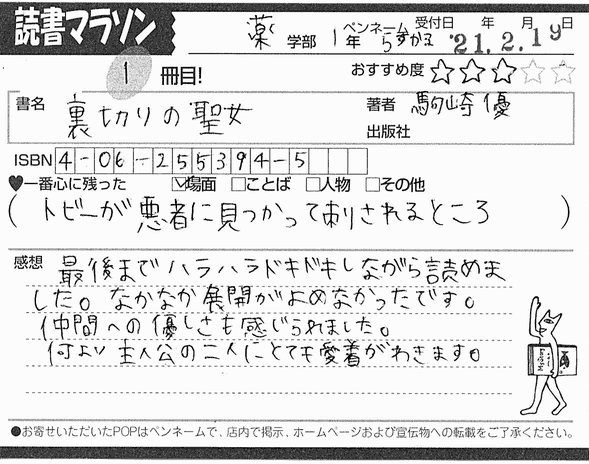 読書マラソン
薬 学部 1年 ペンネーム らすかる 受付日 年 月 日 '21.2.19
1 冊目! おすすめ度 ★★★☆☆
書名 裏切りの聖女 著者 駒崎優
出版社
ISBN 4-06-255394-5
♥一番心に残った ☑場面 □ことば □人物 □その他
(トビーが悪者に見つかって刺されるところ)
感想 最後までハラハラドキドキしながら読めま
した。なかなか展開がよめなかったです。
仲間への優しさも感じられました。
何より主人公の二人にとても愛着がわきます。
●お寄せいただいたPOPはペンネームで、店内で掲示、ホームページおよび宣伝物への転載をご了承ください。